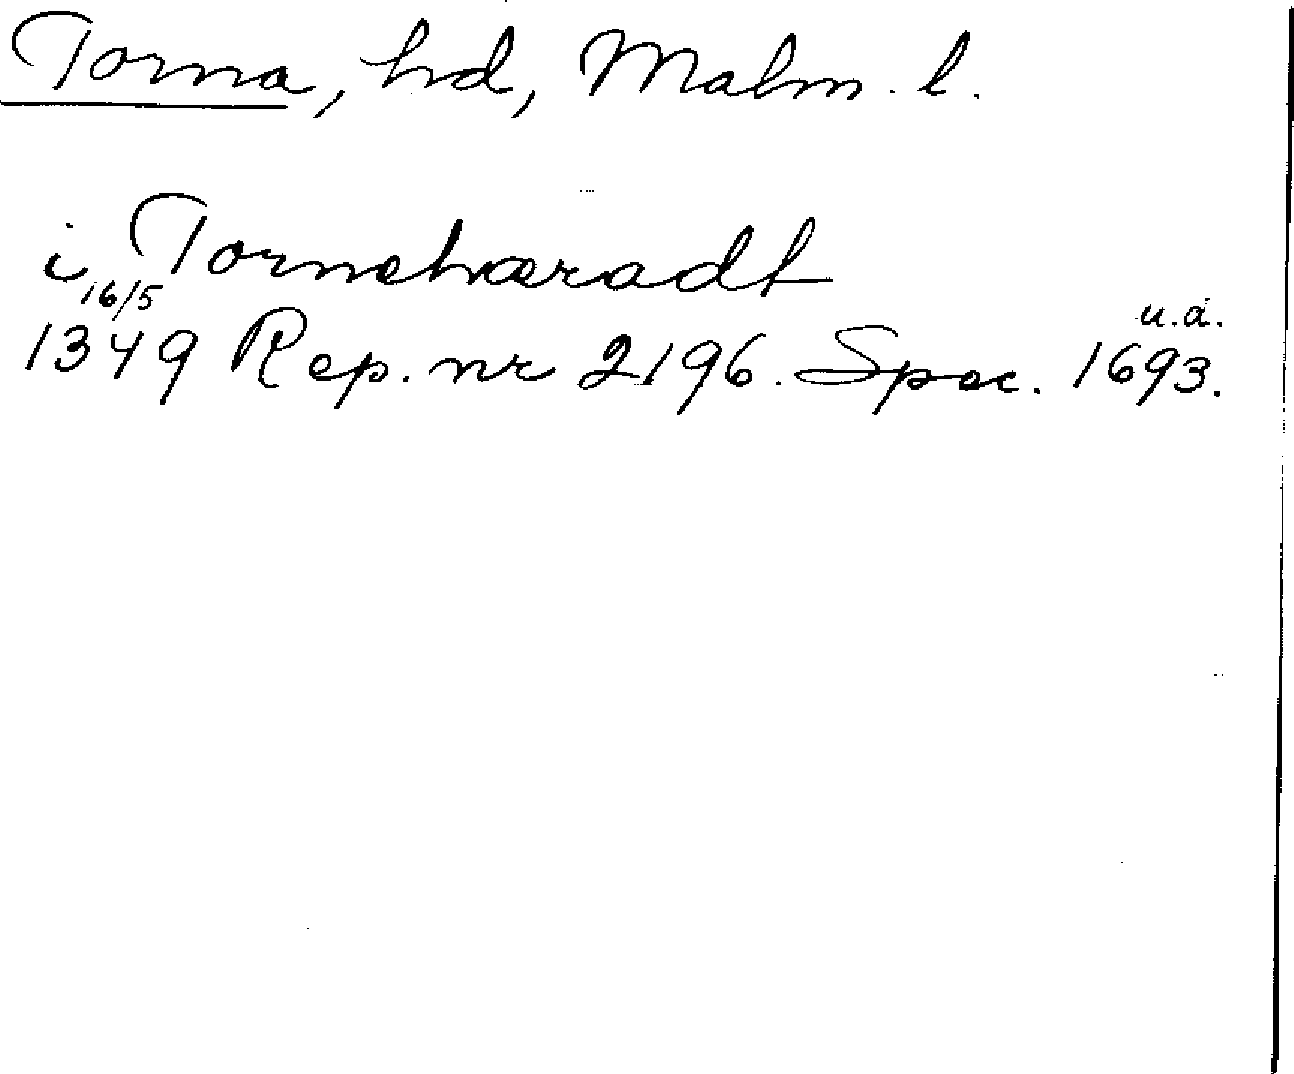 Torna, hd, Malm. l.
i Tornehæradt
16/5 u.å.
1349 Rep. nr 2196. Spec. 1693.